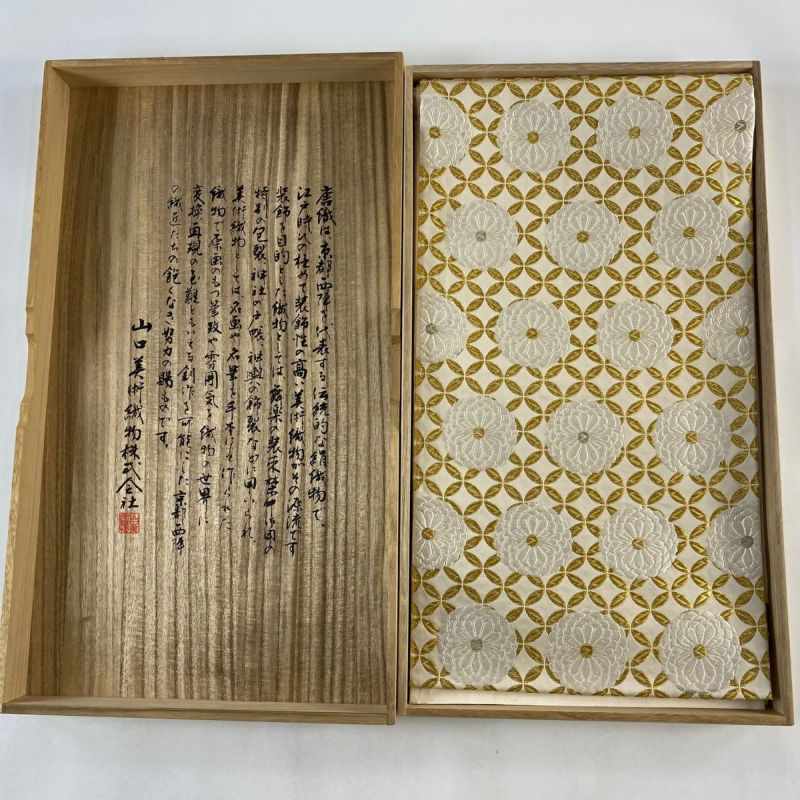 唐織は京都西陣を代表する伝統的な絹織物で、
江戸時代の極めて装飾性の高い美術織物がその源流です
装飾を目的とした織物としては、能楽の装束、禁中御用の
特別の包裂、神社の戸帳、神輿の飾裂などに用いられ、
美術織物としては、名画や名筆を手本にして作られた
織物で原画のもつ筆致や雰囲気を織物の世界に
変換再現の至難ともいえる創作を可能にした京都西陣
の織匠たちの飽くなき努力の賜ものです。
山口美術織物株式会社